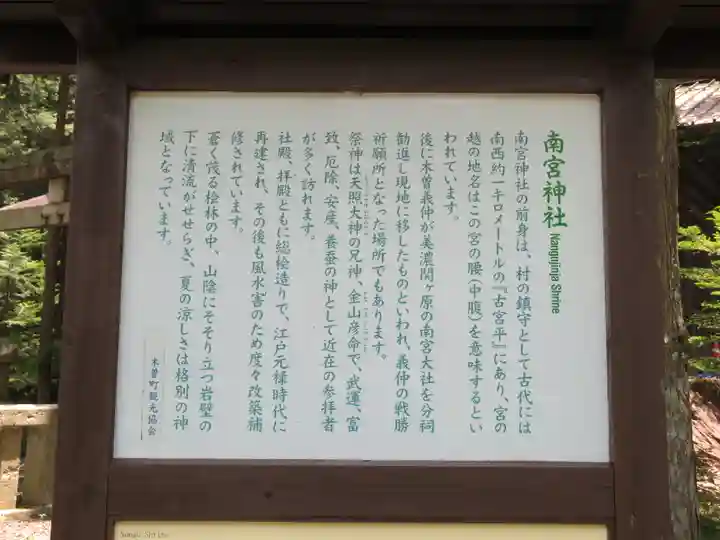 南宮神社 Nangujinja Shrine
南宮神社の前身は、村の鎮守として古代には
南西約一キロメートルの『古宮平』にあり、宮の
越の地名はこの宮の腰（中腹）を意味するとい
われています。
後に木曽義仲が美濃関ヶ原の南宮大社を分祠
勧進し現地に移したものといわれ、義仲の戦勝
祈願所となった場所でもあります。
祭神は天照大神の兄神、金山彦命で、武運、富
致、厄除、安産、養蚕の神として近在の参拝者
が多く訪れます。
社殿、拝殿ともに総桧造りで、江戸元禄時代に
再建され、その後も風水害のため度々改築補
修されています。
蒼く茂る桧林の中、山陰にそそり立つ岩壁の
下に清流がせせらぎ、夏の涼しさは格別の神
域となっています。
木曽町観光協会